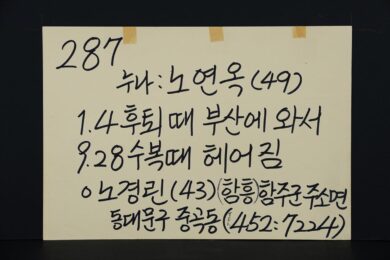 287
누나: 노연옥(49)
1.4 후퇴 때 부산에 와서
9.28 수복때 헤어짐
○ 노경린(43)(함흥)함주군 주소면
동대문구 중곡동(452:7224)